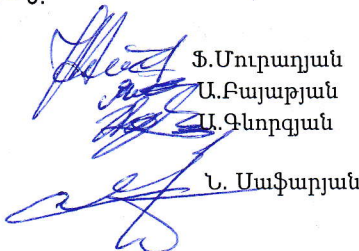 Ֆ.Մուրադյան
Ա.Բայաթյան
Ա.Գևորգյան
Ն. Սաֆարյան